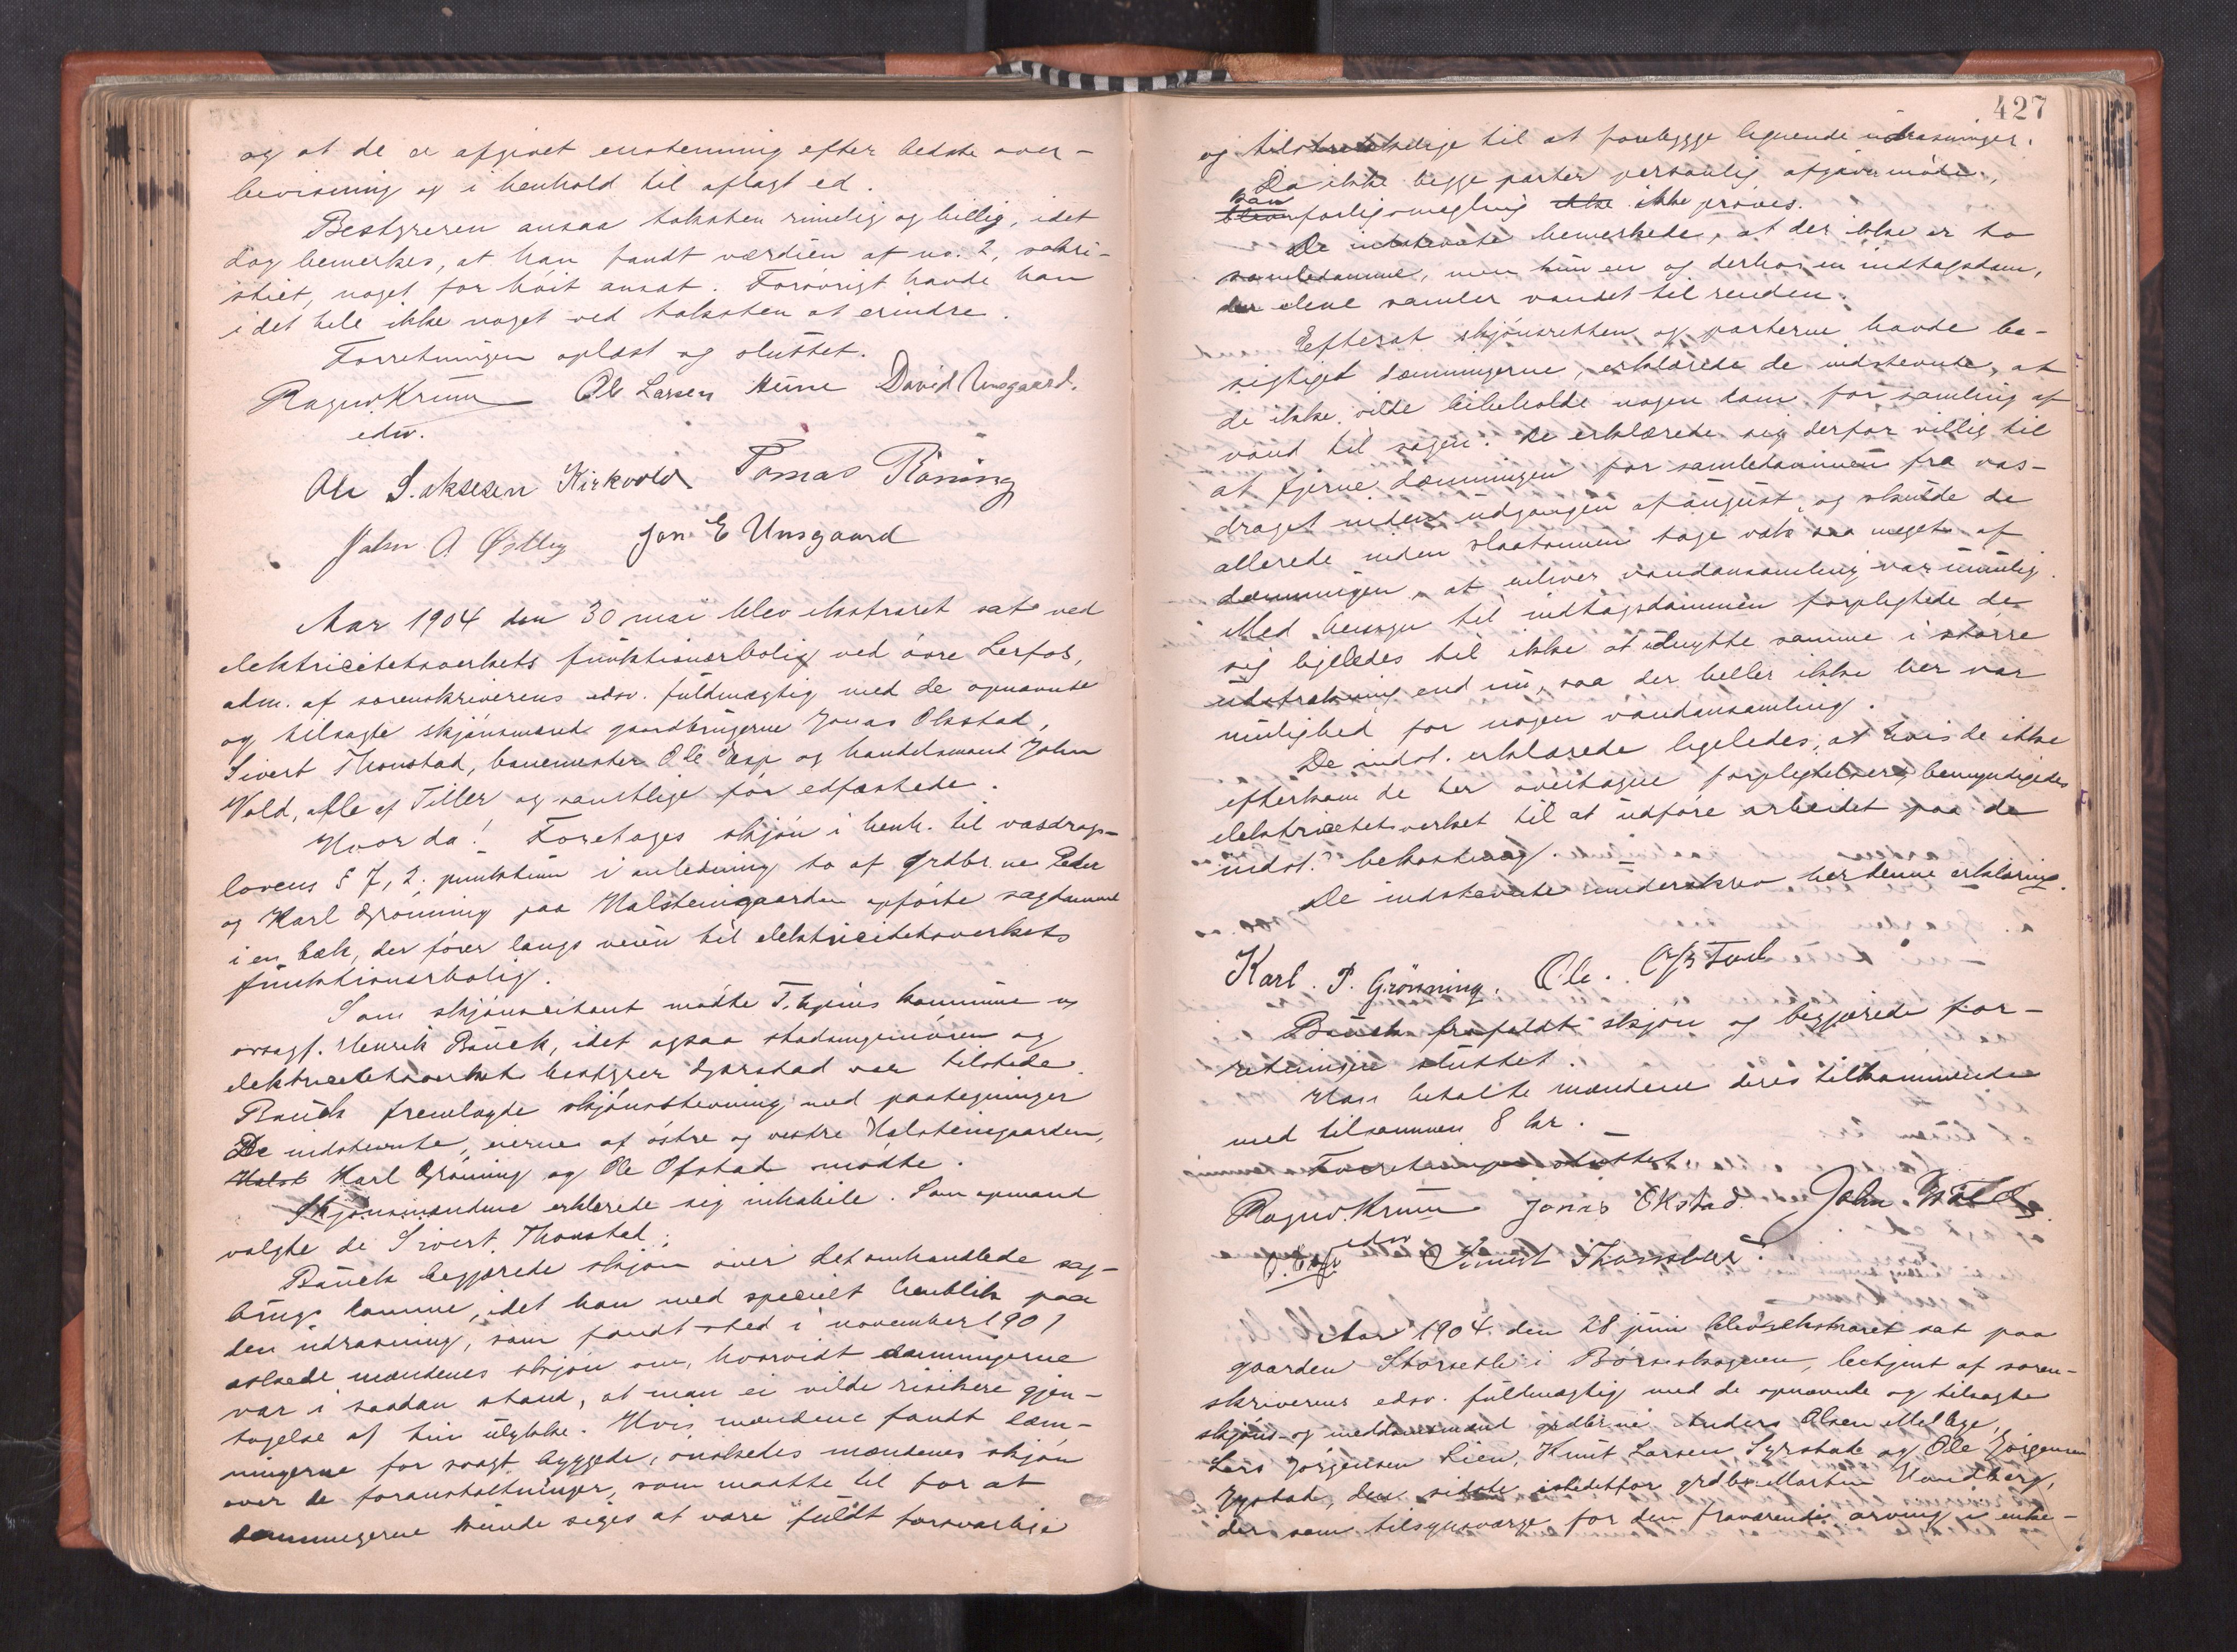 og at de er afgivet enstemmig efter bedste over-
bevisning og i henhold til aflagt ed.
Bestyreren ansaa taksten rimelig og billig, idet
dog bemerkes, at han fandt værdien af no. 2, sekri-
stiet, noget for höit ansat. Forövrigt havde han
i det hele ikke noget ved taksten at erindre.
Forretningen oplæst og sluttet.
Ragnv. Krum Ole Larsen Hüne David Unsgaard.
edsv.
Ole Isaksen Kirkvold Tomas Röning
John A Östby Jon E Unsgaard
Aar 1904 den 30 mai blev ekstraret sat ved
elektricitetsverkets funktionærbolig ved övre Lerfos,
adm. af sorenskriverens edsv. fuldmægtig med de opnævnte
og tilsagte skjönsmænd gaardbrugerne Jonas Okstad,
Sivert Thonstad, banemester Ole Esp og handelsmand John
Vold, alle af Tiller og samtlige för edfæstede.
Hvorda! Foretages skjön i henh. til vasdrags-
lovens § 7, 2. punktum i anledning to af grdbr.ne Peder
og Karl Grönning paa Halsteingaarden opförte sagdamme
i en bæk, der förer langs veien til elektricitetsverkets
funktionærbolig.
Som skjönscitant mödte T.hjems kommune v
orsagf. Henrik Bauck, idet ogsaa stadsingeniören og
elektricitetsverkets bestyrer Gjørstad var tilstede.
Bauck fremlagde skjönsstevning med paategninger
De indstevnte, eierne af östre og vestre Halsteingaarden,
Halst Karl Grönning og Ole Ofstad mödte.
Skjönsmændene erklærede sig inhabile. Som opmand
valgte de Sivert Thonstad.
Bauck begjærede skjön over det omhandlede sag-
brugs damme, idet han med specielt henblik paa
den udrasning, som fandt sted i november 1901
æskede mændenes skjön om, hvorvidt dæmningerne
var i saadan stand, at man ei vilde risikere gjen-
tagelse af hin ulykke. Hvis mændene fandt dæm-
ningerne for svagt byggede, önskedes mændenes skjön
over de foranstaltninger, som maatte til for at
dæmningerne kunde siges at være fuldt forsvarlige
427
og tilstrækkelige til at forebygge lignende udrasninger.
Da ikke begge parter personlig afgav möde,
kan
blev forligsmegling ikke ikke pröves.
De indstevnte bemerkede, at der ikke er to
samledamme, men kun en og derhos en indtagsdam,
der alene samler vandet til renden.
Efterat skjönsretten og parterne havde be-
sigtiget dæmningerne, erklærede de indstevnte, at
de ikke vilde bibeholde nogen dam for samling af
vand til sagen. De erklærede sig derfor villig til
at fjerne dæmningen for samledammen fra vas-
draget inden udgangen af august, og skulde de
allerede inden slaatonnen tage væk saa meget af
dæmningen, at enhver vandansamling var umulig.
Med hensyn til indtagsdammen forpligtede de
sig ligeledes til ikke at udnytte samme i större
udstrækning end nu, saa der heller ikke her var
mulighed for nogen vandansamling.
De indst. erklærede ligeledes, at hvis de ikke
efterkom de her overtagne forpligtelser, bemyndigedes
elektricitetsverket til at udföre arbeidet paa de
indst.s bekostning.
De indstevnte underskrev her denne erklæring.
Karl. P. Grönning. Ole. Ofstad
Bauck frafaldt skjön og begjærede for-
retningen sluttet.
Han betalte mændene deres tilkommende
med tilsammen 8 kr.
Forretningen sluttet.
Ragnv. Krum Jonas Okstad. John Wold
edsv
O. Esp Sivert Thonstad.
Aar 1904 den 28 juni blev ekstraret sat paa
gaarden Storsetli i Börseskognen, betjent af soren-
skriverens edsv. fuldmægtig med de opnævnte og tilsagte
skjöns- og meddomsmænd grdbr.ne Anders Olsen Melbye,
Lars Jörgensen Lien, Knut Larsen Syrstad og Ole Jörgensen
Rygstad, den sidste istedetfor grdbr. Martin Hundberg,
der som tilsynsværge for den fraværende arving i enke-